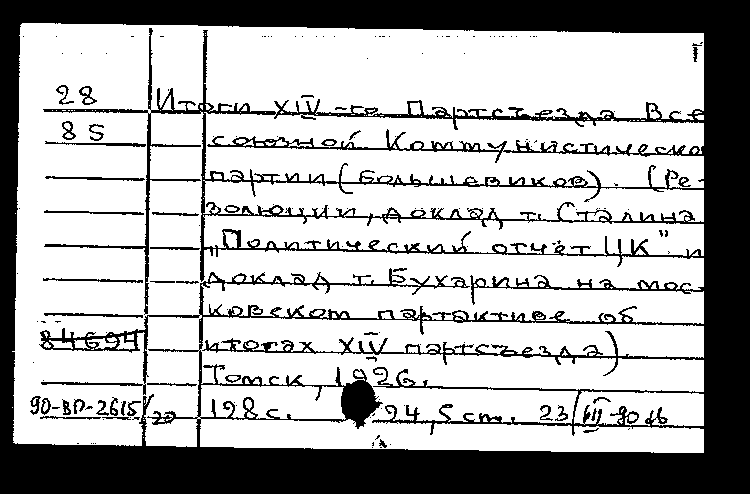 28 Итоги XIV-го Партсъезда Все
85 союзной Коммунистическо
партии (большевиков). (Ре-
золюции, доклад т. Сталина
„Политический отчёт ЦК" и
доклад т. Бухарина на мос-
ковском партактиве об
84694 итогах XIV партсъезда)
Томск, 1926.
90-ВП-2615/20 198 с. 24,5 cm. 23/VII-90